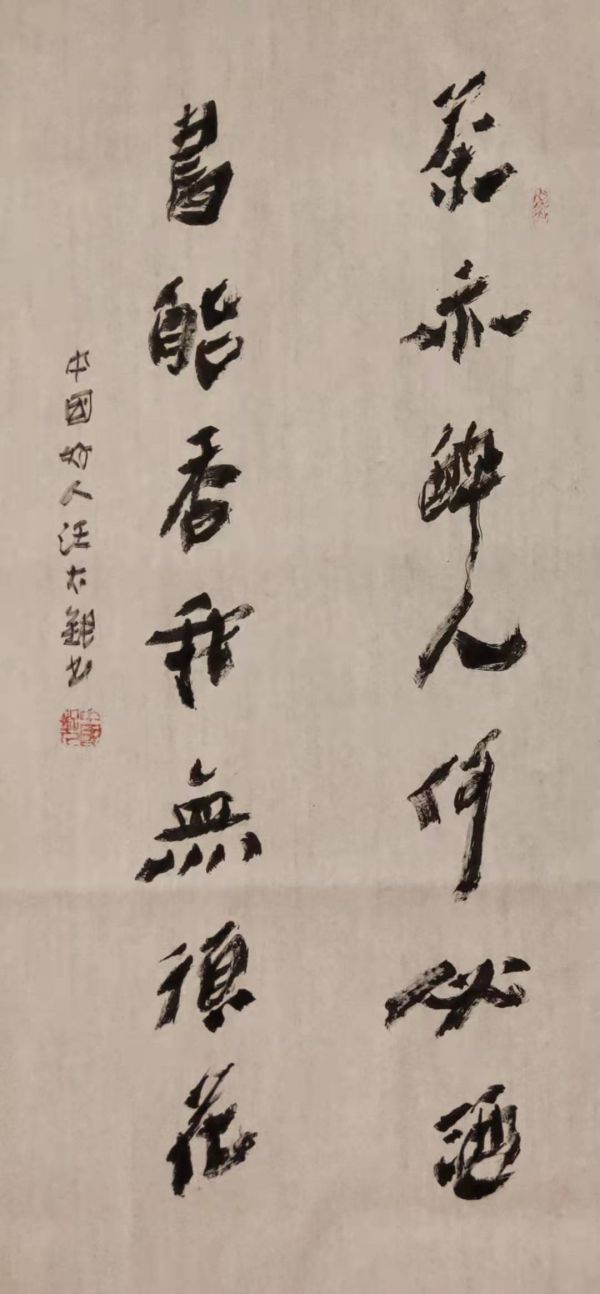 茶亦醉人何必酒
書能香我無須花
中國好人汪大錦书